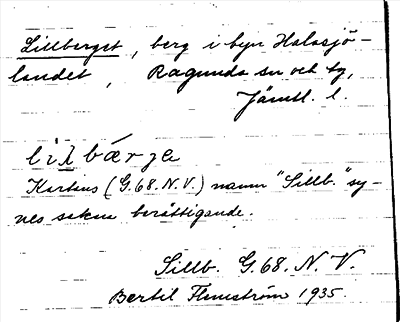 Lillberget, berg i byn Halåsjö-
landet, Ragunda sn och tg,
Jämtl. l.
lilbærja
Kartans (G.68.N.V.) namn "Sillb." sy-
nes sakna berättigande.
Sillb. G.68.N.V.
Bertil Flemström 1935.